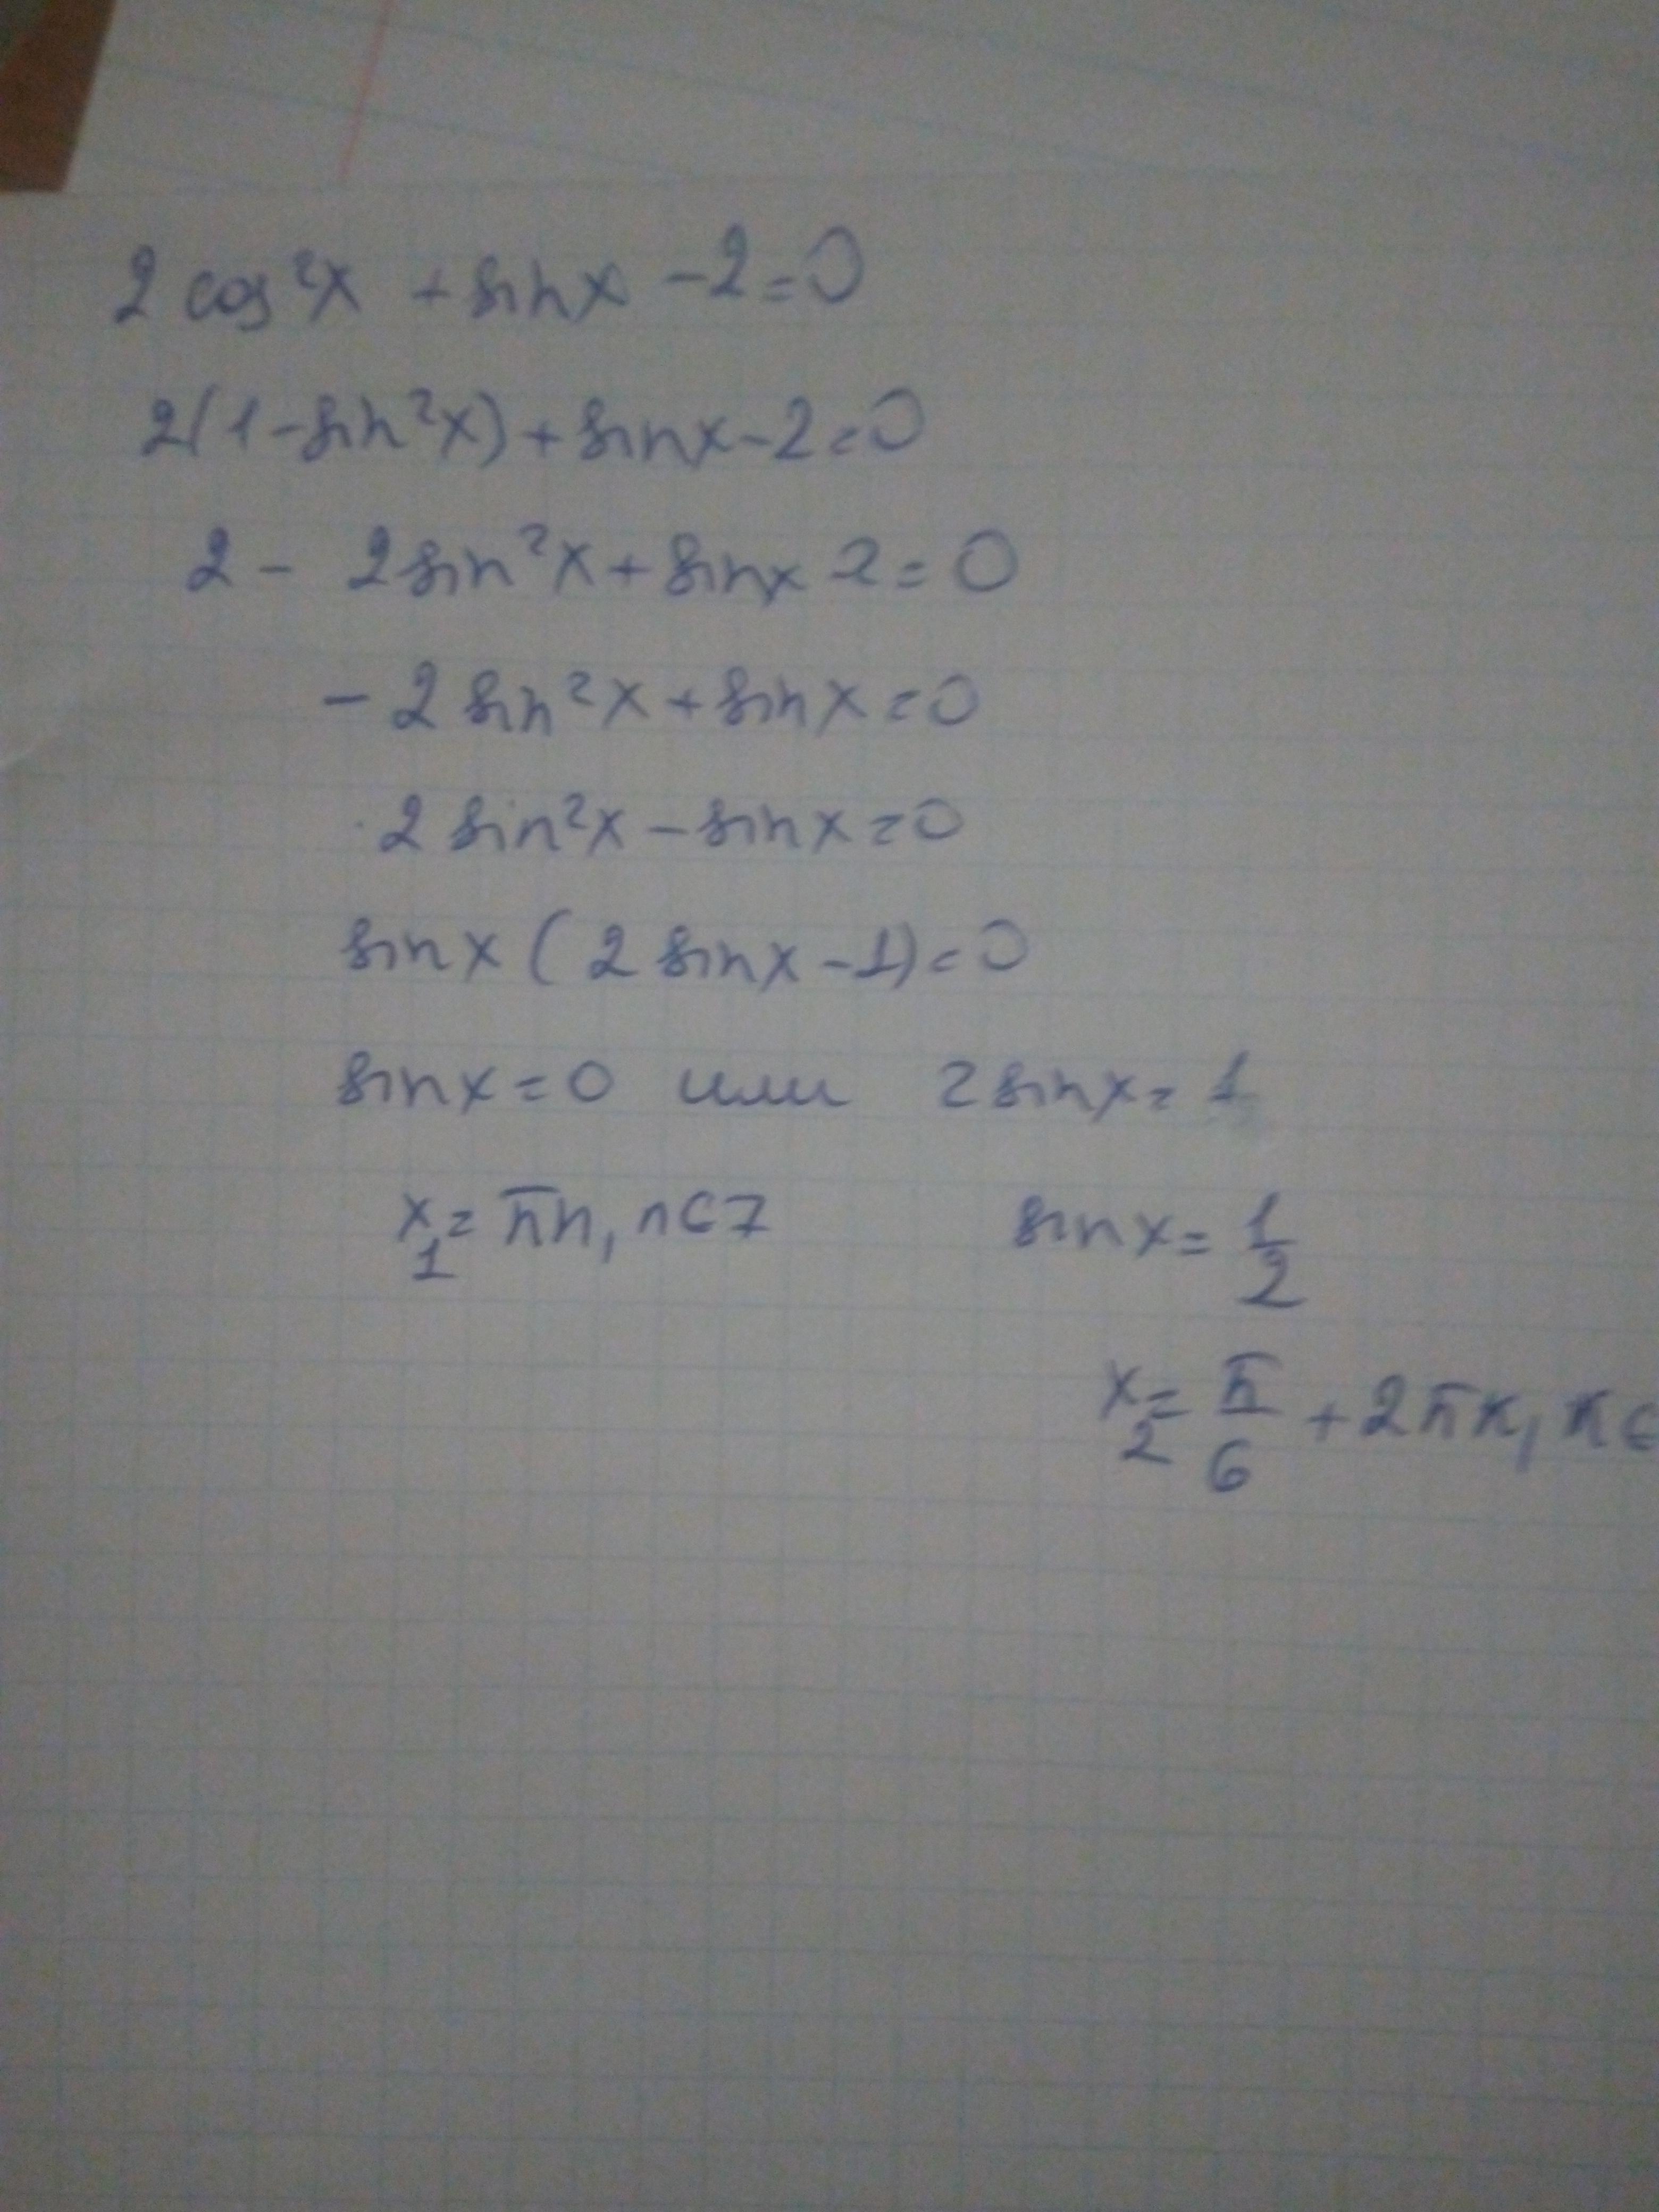 2 cos²x + sinx - 2 = 0
2(1 - sin²x) + sinx - 2 = 0
2 - 2 sin²x + sinx 2 = 0
- 2 sin²x + sinx = 0
2 sin²x - sinx = 0
sinx ( 2 sinx - 1) = 0
sinx = 0 или 2 sinx = 1
x₁ = πn, n∈Z sinx = 1/2
x₂ = π/6 + 2πк, к∈